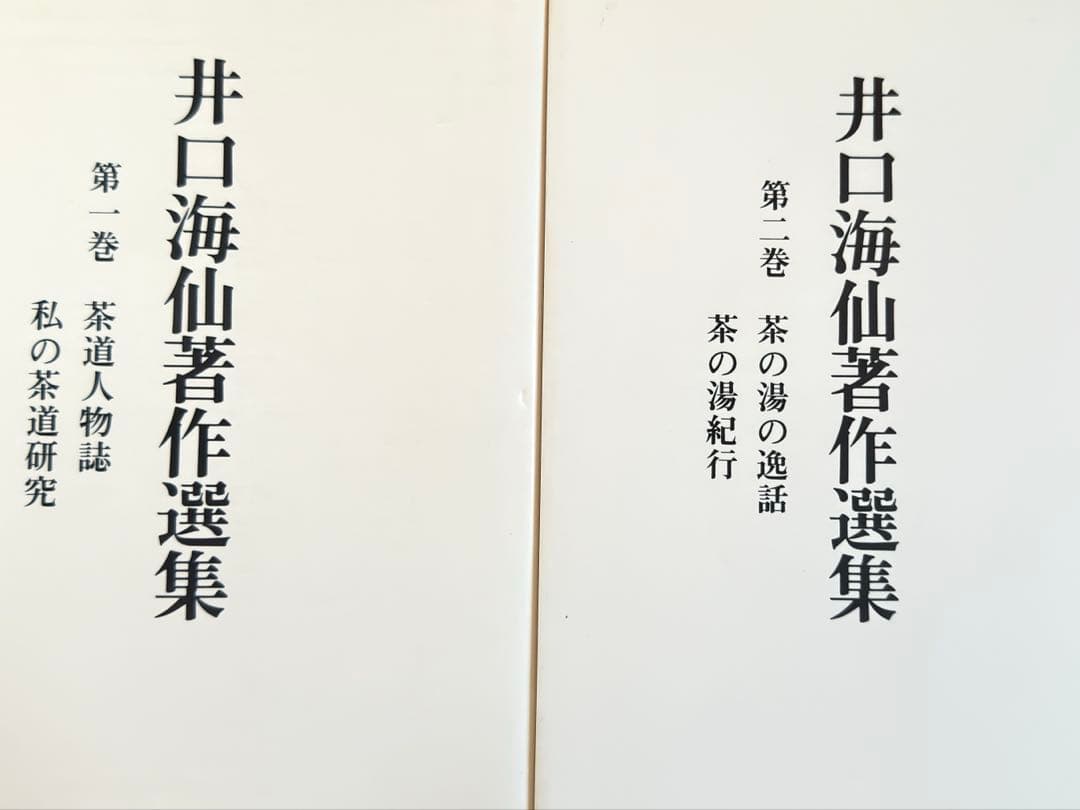 井口海仙著作選集
第一巻 茶道人物誌
私の茶道研究
井口海仙著作選集
第二巻 茶の湯の逸話
茶の湯紀行